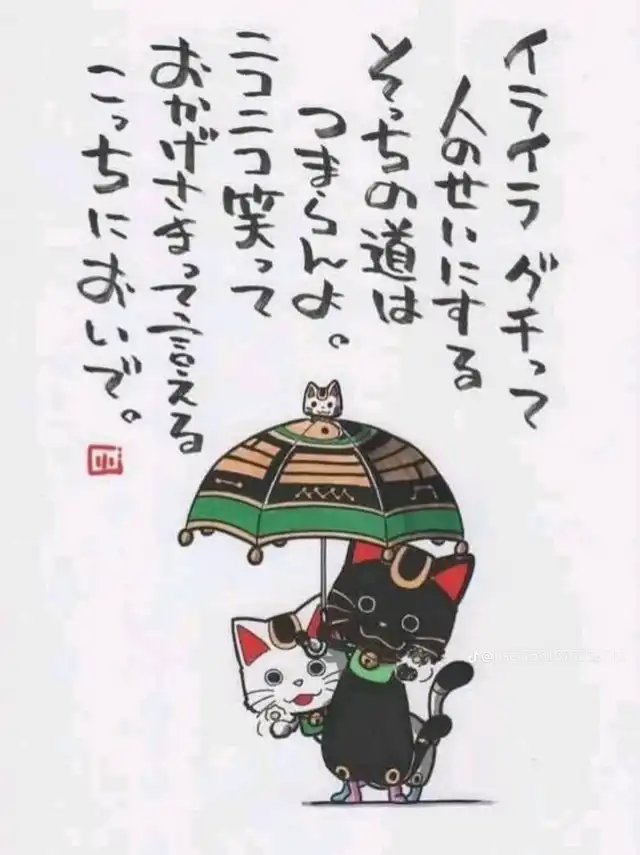 イライラ グチって
人のせいにする
そっちの道は
つまらんよ。
ニコニコ笑って
おかげさまって言える
こっちにおいで。